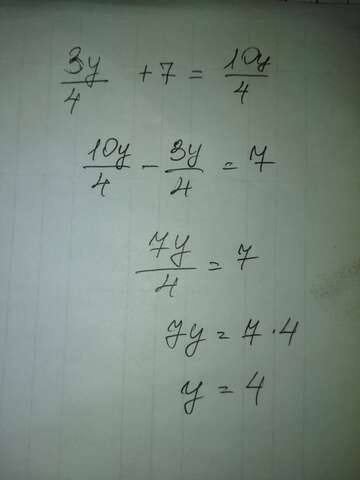 3y/4 + 7 = 10y/4
10y/4 - 3y/4 = 7
7y/4 = 7
7y = 7 · 4
y = 4